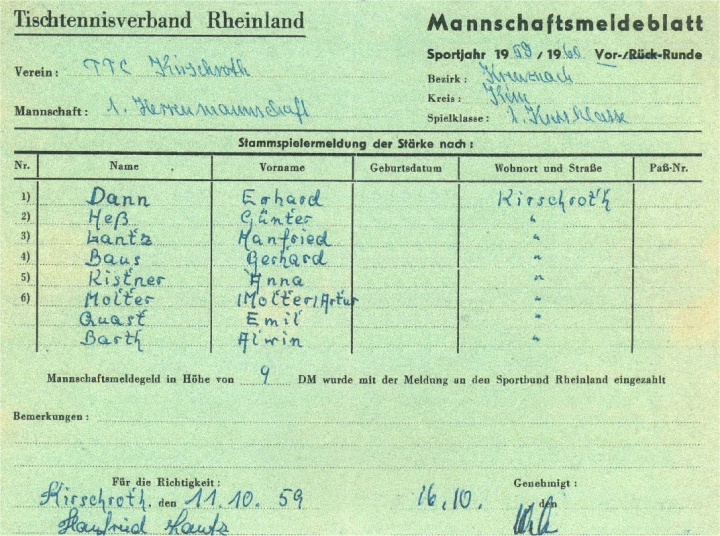 Tischtennisverband Rheinland
Mannschaftsmeldeblatt
Sportjahr 1959 / 1960 Vor-/Rück-Runde
Verein: TTC Kirschroth
Bezirk: Kreuznach
Kreis: Kirn
Mannschaft: 1. Herrenmannschaft
Spielklasse: 2. Kreisklasse
Stammspielermeldung der Stärke nach:
Nr. Name Vorname Geburtsdatum Wohnort und Straße Paß-Nr.
1) Dann Erhard Kirschroth
2) Heß Günter "
3) Lantz Manfried "
4) Baus Gerhard "
5) Kistner Anna "
6) Molter (Molter) Artur "
Quast Emil "
Barth Alwin "
Mannschaftsmeldegeld in Höhe von 9 DM wurde mit der Meldung an den Sportbund Rheinland eingezahlt
Bemerkungen:
Für die Richtigkeit: Genehmigt:
Kirschroth, den 11.10.59 16.10. den
Manfried Lantz